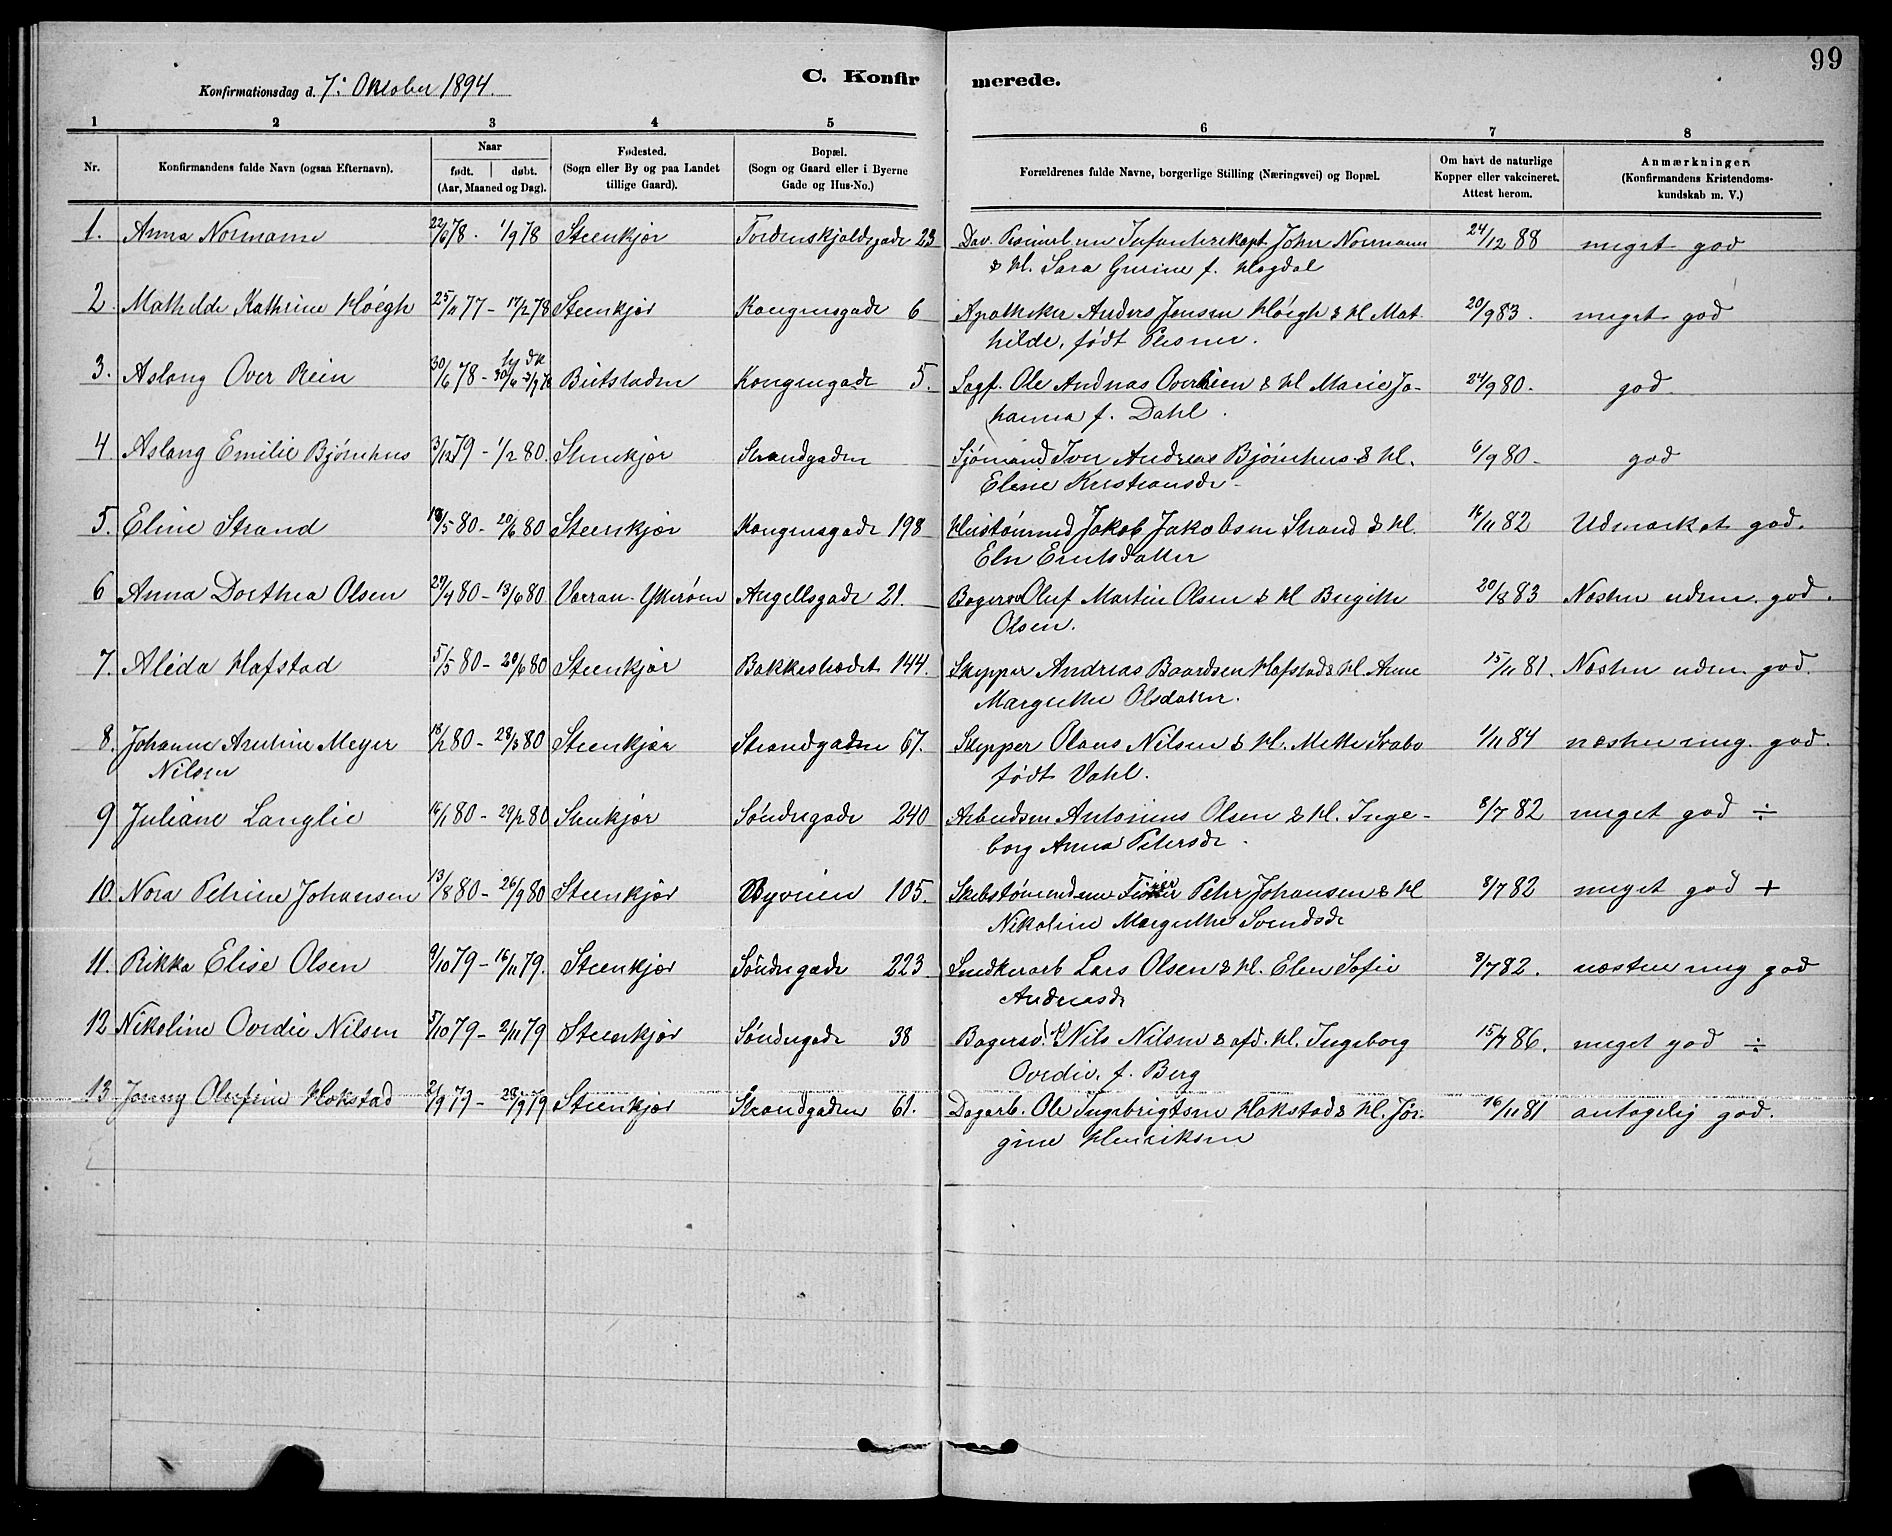 99
C. Konfirmerede.
Konfirmationsdag d. 7: Oktober 1894.
1 2 3 4 5 6 7 8
Nr. Konfirmandens fulde Navn (ogsaa Efternavn). Naar født. døbt. (Aar, Maaned og Dag). Fødested. (Sogn eller By og paa Landet tillige Gaard). Bopæl. (Sogn og Gaard eller i Byerne Gade og Hus-No.) Forældrenes fulde Navne, borgerlige Stilling (Næringsvei) og Bopæl. Om havt de naturlige Kopper eller vakcineret. Attest herom. Anmærkninger (Konfirmandens Kristendomskundskab m. V.)
1. Anna Normann 22/6 78. 1/9 78 Steenkjær Tordenskjoldsgade 23 Dav. Infanterikapt. John Normann 24/12 88 meget god
& H. Sara Gurine f. Hogdal
2. Mathilde Kathrine Høegh 25/11 77 - 17/2 78 Steenkjær Kongensgade 6 Apotheker Anders Jensen Høegh & H. Mat 20/9 83. meget god
hilde, født Plesner.
3. Aslaug Over Rein 30/6 78 - Beitstaden Kongensgade 5. Sagf. Ole Andreas Overrein & H. Marie Jo- 24/9 80. god
hanna f. Dahl.
4 Aslaug Emilie Bjørnhus 3/12 79 - 1/2 80 Steenkjær Strandgaden Sjømand Iver Andreas Bjørnhus & H. 6/9 80 - god
Elene Kristiansdr -
5. Eline Strand 18/5 80 - 20/6 80 Steenkjær Kongensgade 198 Hustømmerm Jakob Jakobsen Strand & H. 16/11 82 Udmærket god.
Elen Erntsdatter
6 Anna Dorthea Olsen 29/4 80 - 13/6 80 Værran - Angellsgade 21. Bagersv Oluf Martin Olsen & H Birgitte 20/8 83 Næsten udm. god.
Olsen.
7. Alida Hafstad 5/5 80 - 20/6 80 Steenkjær Bakkestrædet 144. Skipper Andreas Baardsen Hafstad & H. Anne 15/11 81. Næsten udm. god.
Margrethe Olsdatter.
8. Johanne Arntine Meyer 18/2 80 - 28/3 80 Steenkjær Strandgaden 67. Skipper Olaus Nilsen & H. Mette Svabo 1/11 84 næsten meg. god.
Nilsen født Vahl.
9 Juliane Langlie 16/1 80 - 29/2 80 Steenkjær Søndregade 240 Arbeidsm Antonius Olsen & H. Inge- 8/7 82 meget god ÷
borg Anna Petersdr.
10. Nora Petrine Johansen 13/8 80 - 26/9 80 Steenkjær Byveien 105. Skibstømmermand Peter Johansen & H 8/7 82 meget god +
Nikoline Margrethe Svendsdr
11. Rikka Elise Olsen 9/10 79 - 16/11 79. Steenkjær Søndregade 223 Snedkerarb Lars Olsen & H. Elen Sofie 8/7 82. næsten meg god
Andreasdr
12 Nikoline Ovedie Nilsen 5/10 79 - 2/11 79 Steenkjær Søndregade 38 Bagersv. Nils Nilsen & afd. H. Ingeborg 15/7 86. meget god ÷
Ovedie. f. Berg
13 Jenny Olufine Hokstad 2/9 79 - 28/9 79 Steenkjær Strandgaden 61. Dagarb. Ole Ingebrigtsen Hokstad & H. Jør- 16/11 81 antagelig god.
gine Henriksen